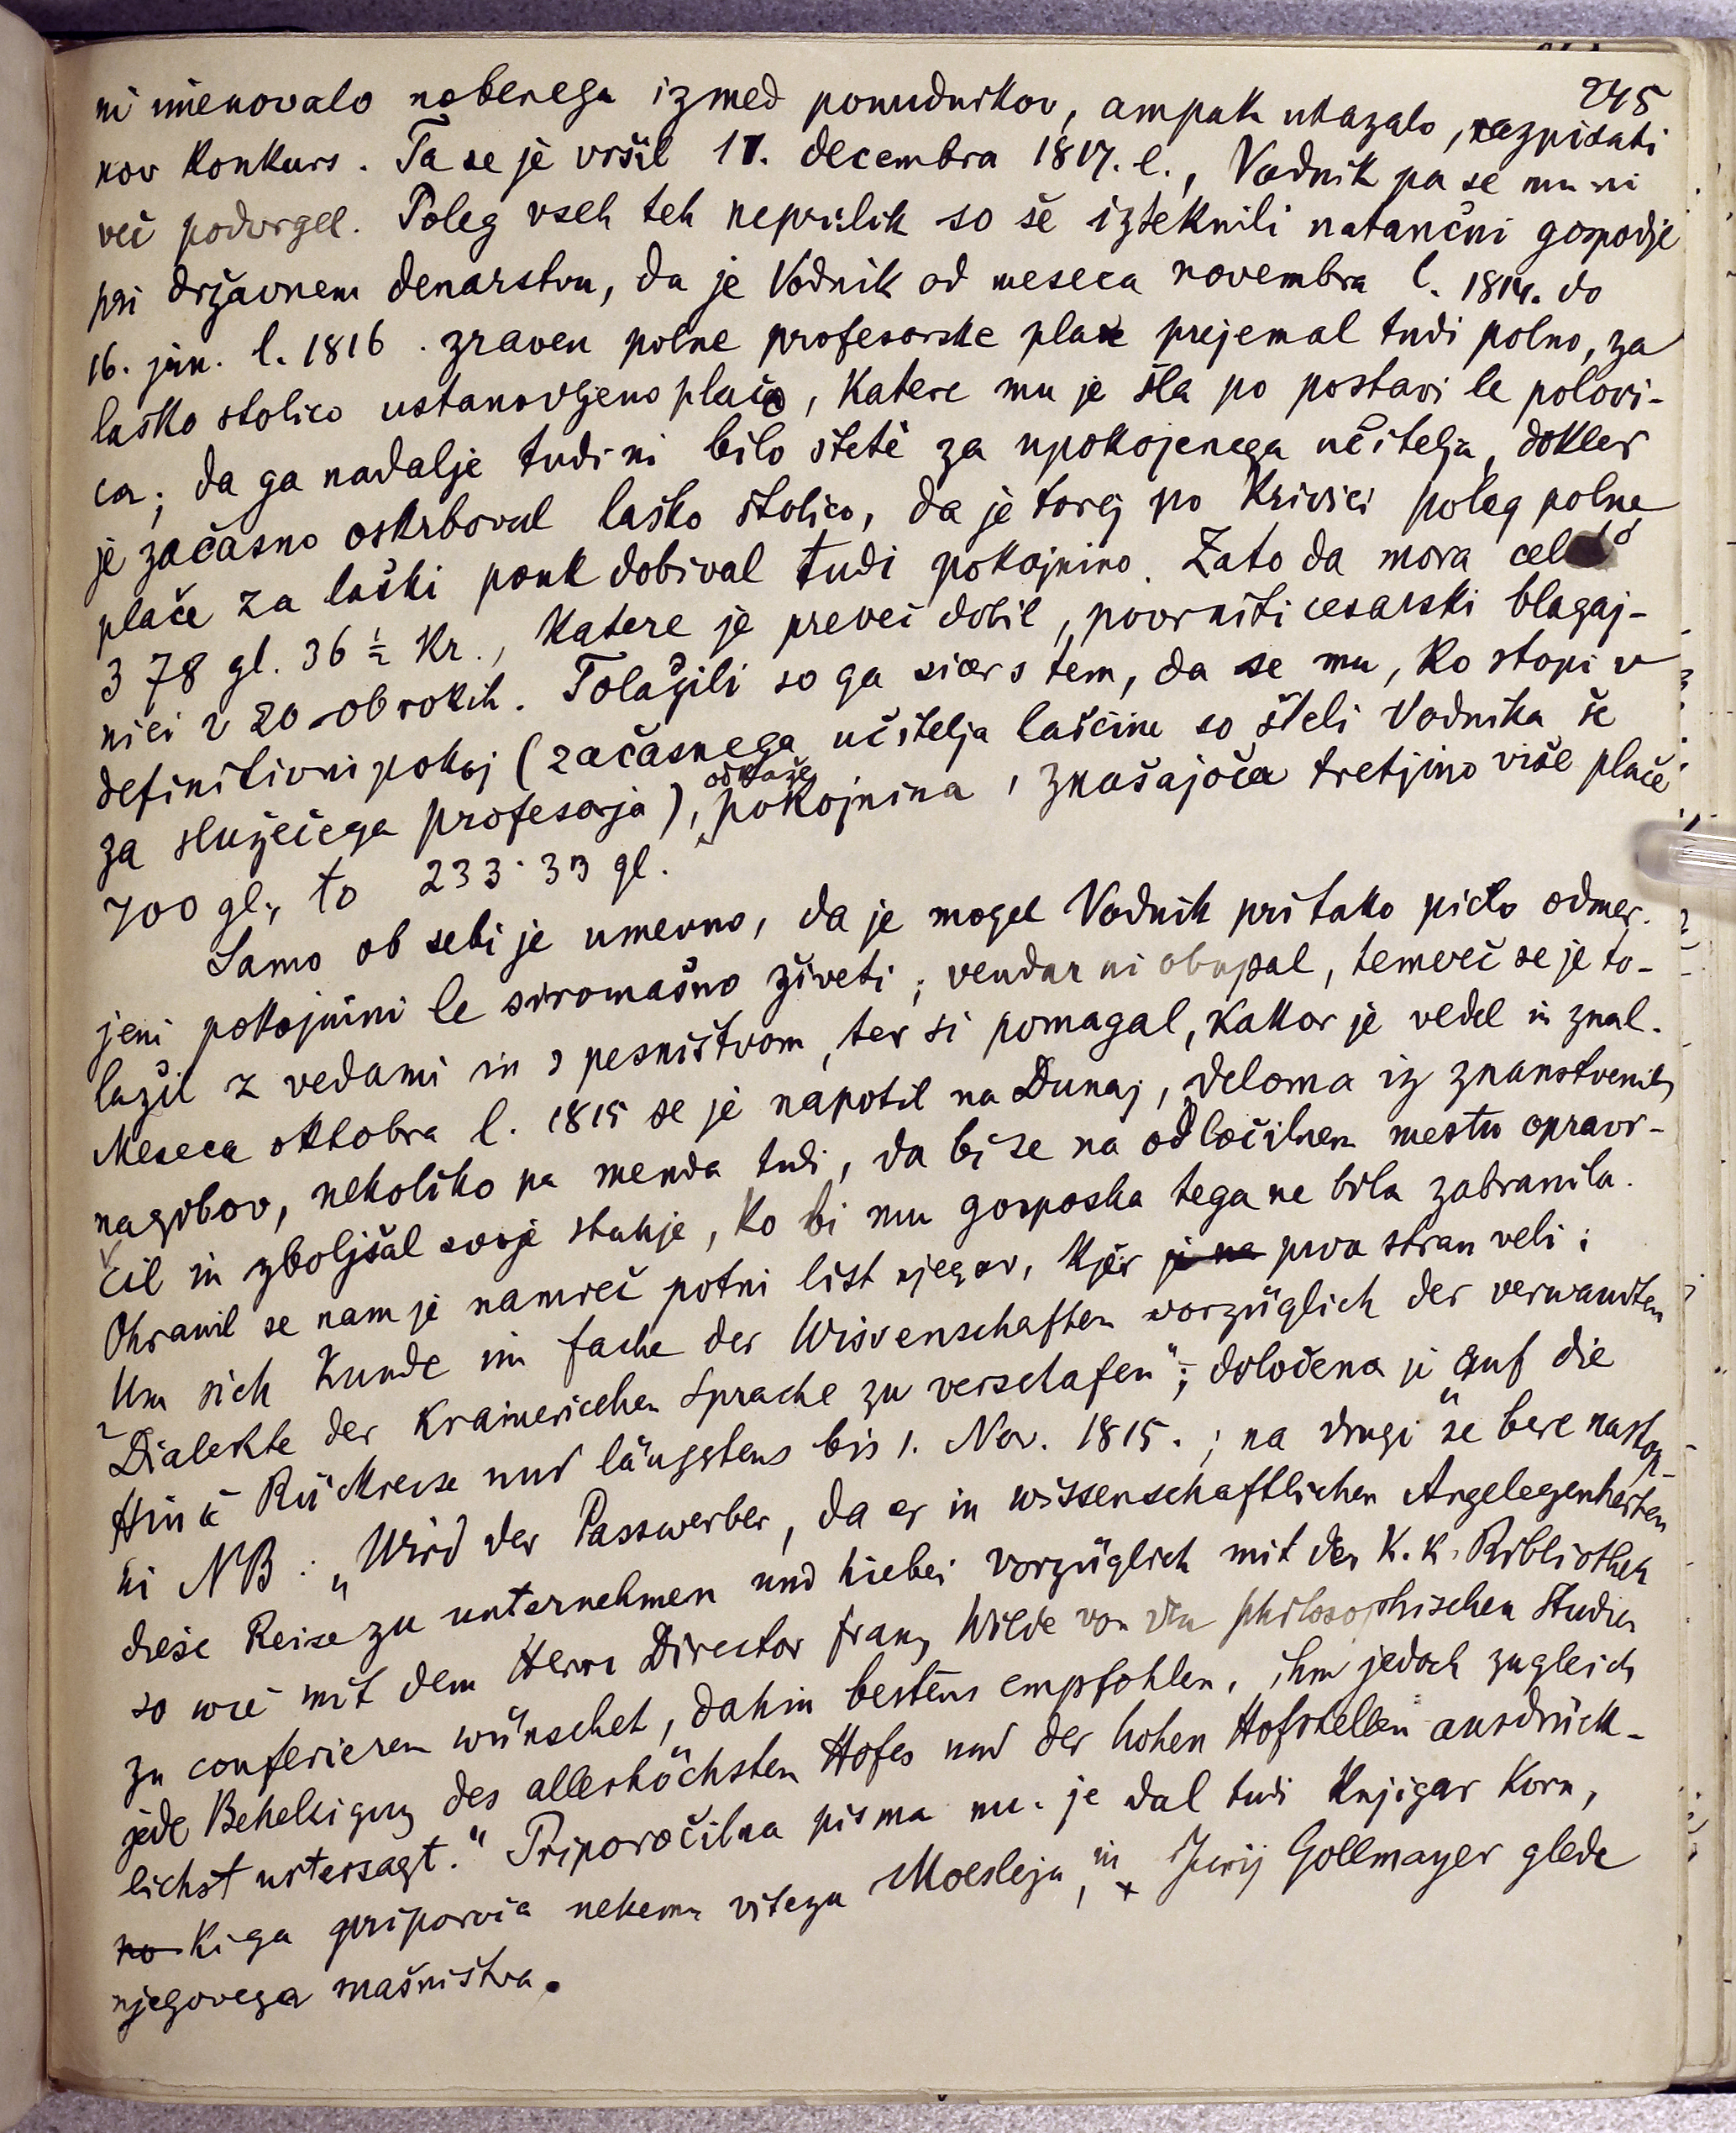 245
ni imenovalo nobenega izmed ponudnikov, ampak ukazalo, razpisati
nov konkurs. Ta se je vršil 11. decembra 1817. l., Vodnik pa se mu ni
več podvrgel. Poleg vseh teh neprilik so še izteknili natančni gospodje
pri državnem denarstvu, da je Vodnik od meseca novembra l. 1814. do
16. jan. l. 1816. zraven polne profesorske plače prejemal tudi polno, za
laško stolico ustanovljeno plačo, katere mu je šla po postavi le polovi-
ca; da ga nadalje tudi ni bilo šteti za upokojenega učitelja, dokler
je začasno oskrboval laško stolico, da je torej po krivici poleg polne
plače za laški pouk dobival tudi pokojnino. Zato da mora celo
378 gl. 36 ½ kr., katere je preveč dobil, povrniti cesarski blagaj-
nici v 20 obrokih. Tolažili so ga sicer s tem, da se mu, ko stopi v
definitivni pokoj (začasnega učitelja laščine so šteli Vodnika še
za služečega profesorja), odkaže pokojnina, znašajoča tretjino više plače
700 gl., to 233·33 gl.
Samo ob sebi je umevno, da je mogel Vodnik pri tako pičlo odmer-
jeni pokojnini le siromašno živeti; vendar ni obupal, temveč se je to-
lažil z vedami in s pesništvom, ter si pomagal, kakor je vedel in znal.
Meseca oktobra l. 1815 se je napotil na Dunaj, deloma iz znanstvenih
nagibov, nekoliko pa menda tudi, da bi se na odločilnem mestu opravi-
čil in zboljšal svoje stanje, ko bi mu gosposka tega ne bila zabranila.
Ohranil se nam je namreč potni list njegov, kjer je na prva stran veli:
„Um sich Kunde im Fache der Wissenschaften vorzüglich der verwandten
Dialekte der Krainerischen Sprache zu verschafen“; določena je „auf die
Hin & Rückreise und längstens bis 1. Nov. 1815.; na drugi se bere nastop-
ni NB: „Wird der Passwerber, da er in wissenschaftlichen Angelegenheiten
diese Reise zu unternehmen und hiebei vorzüglich mit der K. K. Bibliothek
so wie mit dem Herrn Director Franz Wilde von den philosophischen Studien
zu conferieren wünschet, dahin bestens empfohlen, ihm jedoch zugleich
jede Behelligung des allerhöchsten Hofes und der hohen Hofstellen ausdrück-
lichst untersagt.“ Priporočilna pisma mu je dal tudi knjigar Korn,
no ki ga priporoča nekemu vitezu Moesleju, in Jurij Gollmayer glede
njegovega mašništva.